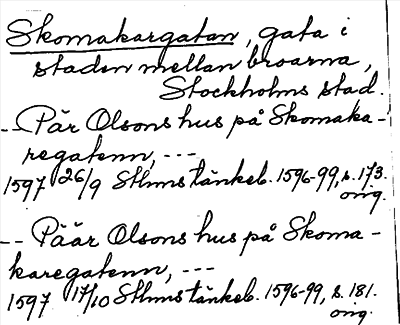 Skomakargatan, gata i
staden mellan broarna,
Stockholms stad.
-- Pär Olsons hus på Skomaka-
regatenn, ---
1597 26/9 Sthms tänkeb. 1596-99, s. 173.
orig.
-- Päär Olsons hus på Skoma-
karegatenn, ---
1597 17/10 Sthms tänkeb. 1596-99, s. 181.
orig.